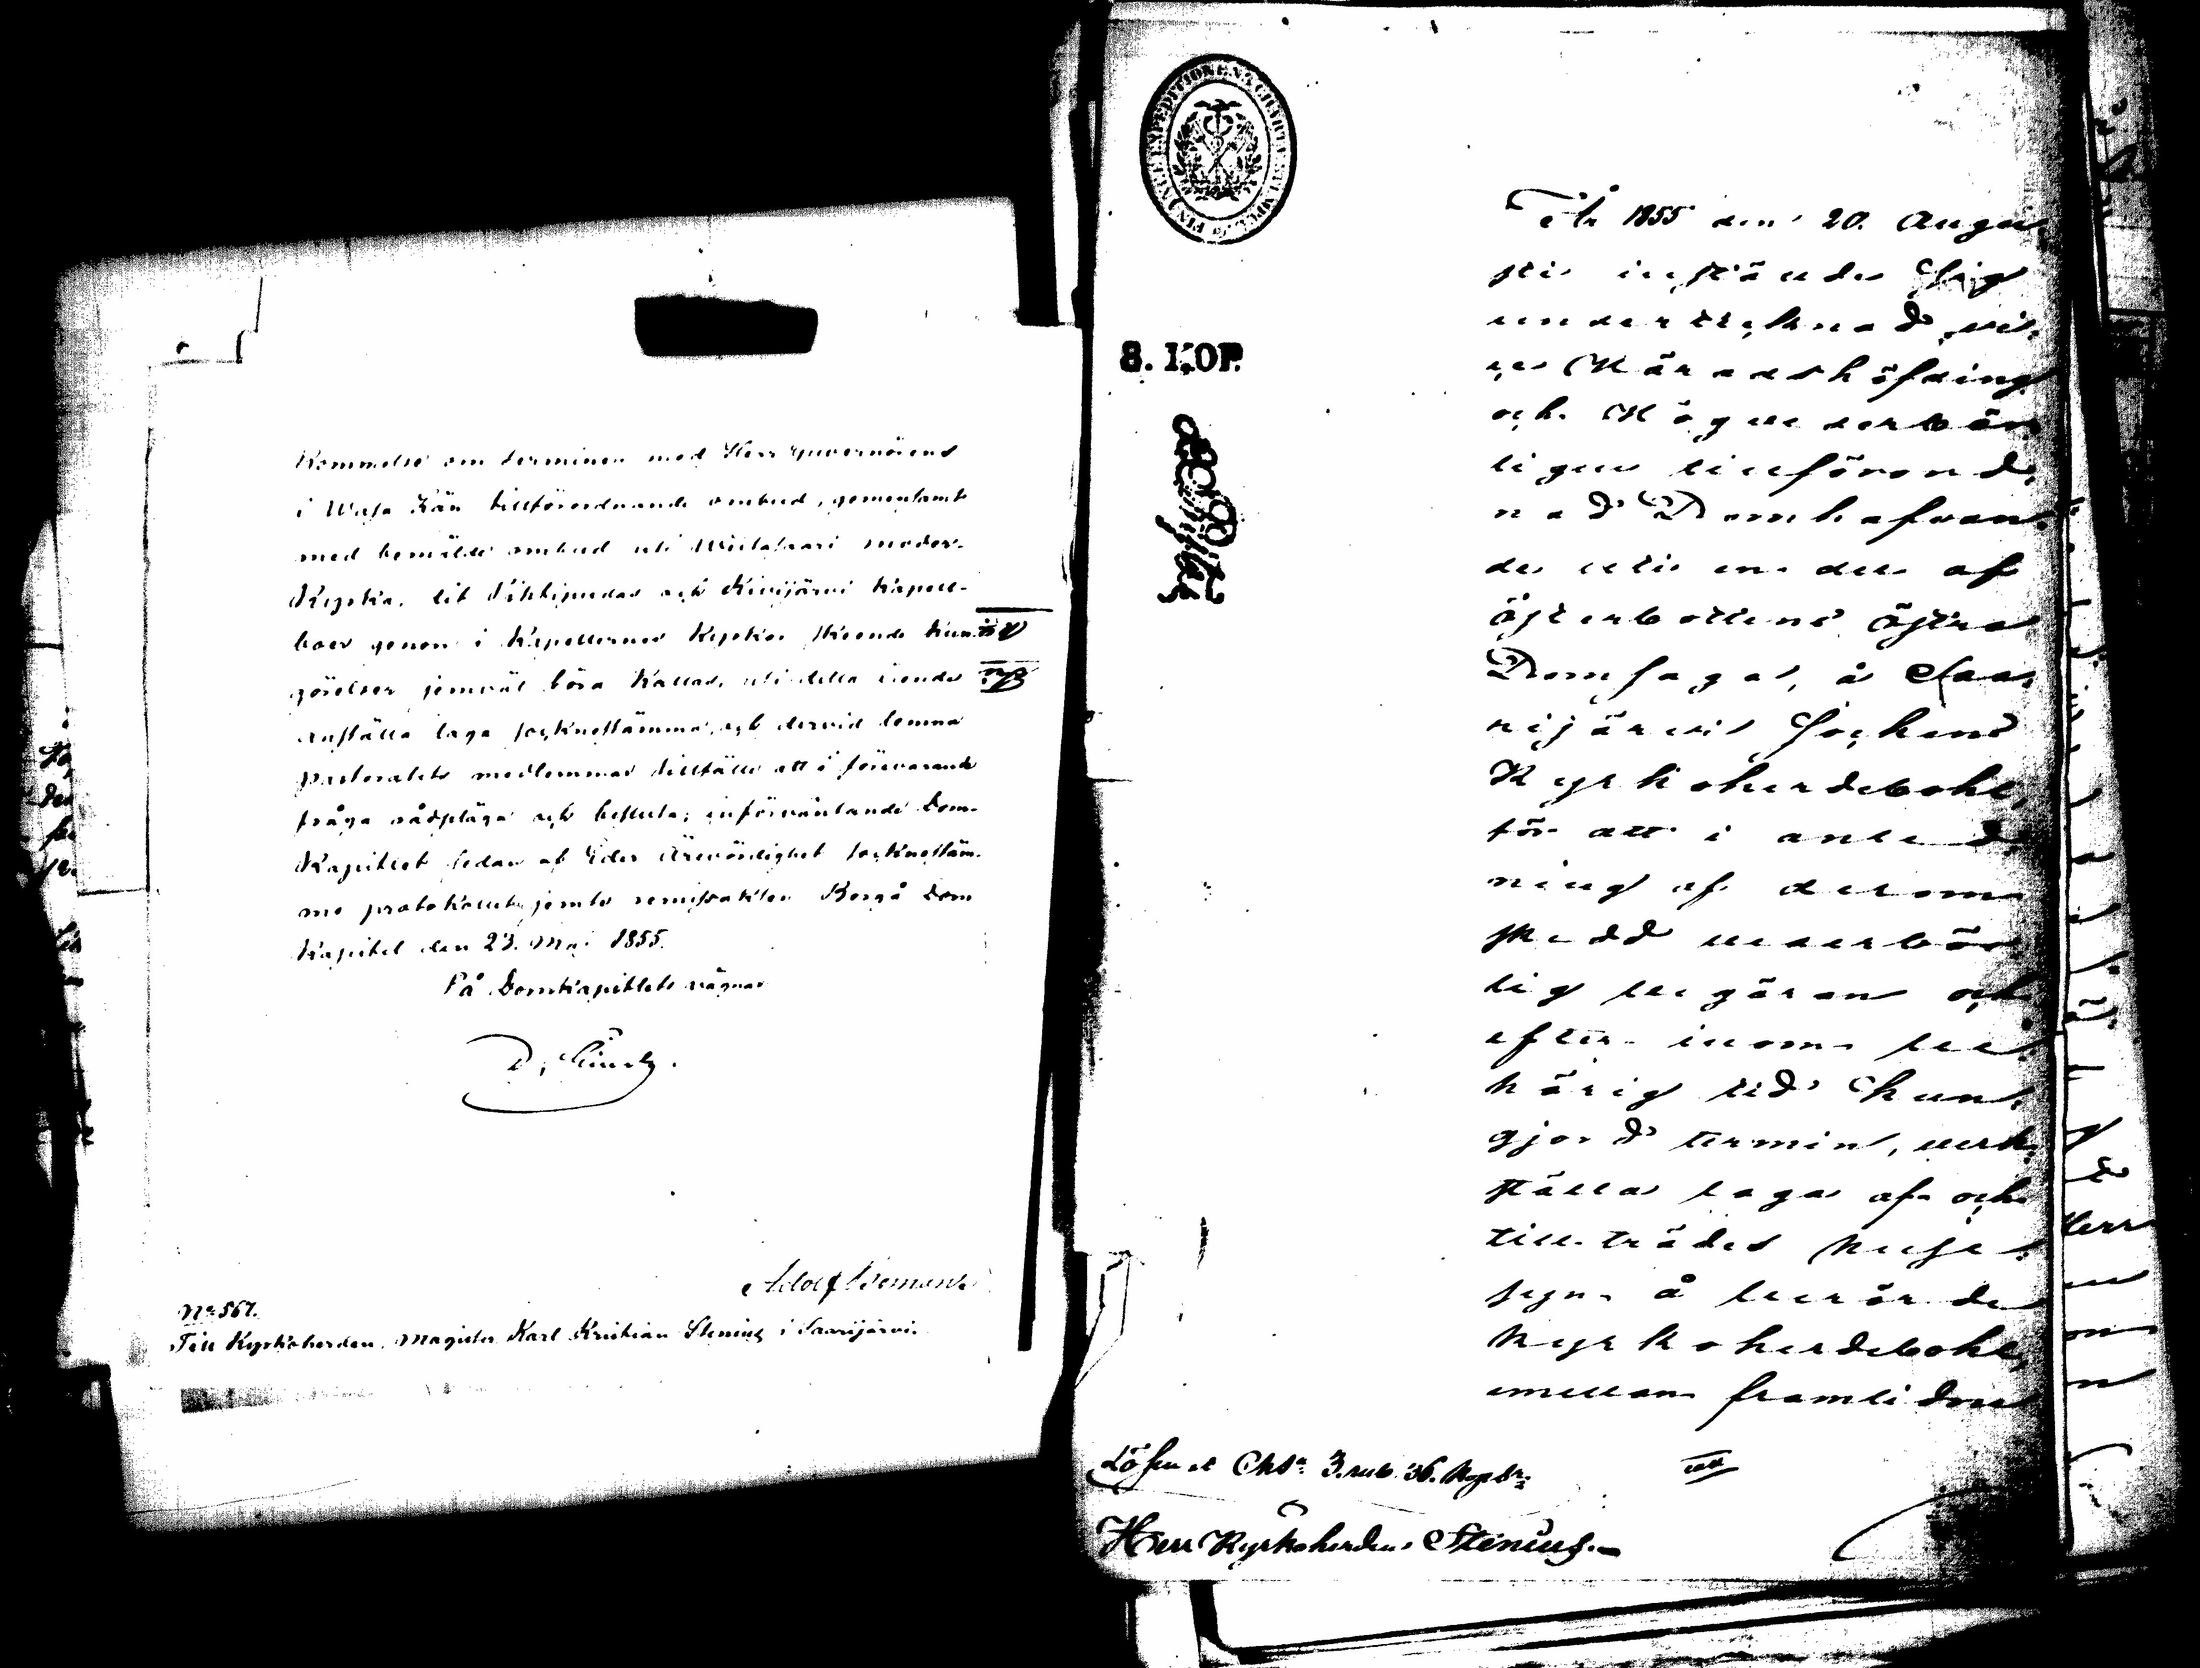 Kommelse om terminen med Herr Guvernörens
i Wasa Län tillförordnande ombud, gemensamt
med bemälde ombud uti Wiitasaari moder-
Kyrka, dit Pihtipudas och Kivijärvi Kapell-
boer genom i Kapellernes Kyrkor skeende kun-
görelser jemväl böra Kallas, uti detta ärende
anställa laga socknestämma, och dervid lemna
Pastoratets medlemmar tillfälle att i förevarande
fråga rådpläga och besluta; införväntande Dom-
Kapitlet sedan af Eder Ärevördighet socknestäm-
mo protokollet jemte remissakten. Borgå Dom
Kapitel den 23. Maj 1855.
På Domkapitlets vägnar
Adolf
No 567.
Till Kyrkoherden, Magister Karl Kristian Stenius i Saarijärvi.
8. KOP.
År 1855 den 20. Augu
sti instälde sig
undertecknad, vi
ce Häradshöfding
och Högvederbör
ligen tillförord
nad Domhafvan
de uti en del af
Österbottens östra
Domsaga, å Saa
rijärvi Sockens
Kyrkoherdebohl,
för att i anled
ning af derom
skedd vederbör
lig begäran och
efter inom be
hörig tid kun
gjord termin, verk
ställa laga af och
tillträdes husе
syn å berörde
Kyrkoherdebohl,
emellan framlidne
Lösen et Chta 3. rub. 36. kop. Sr
Herr Kyrkoherden Stenius.